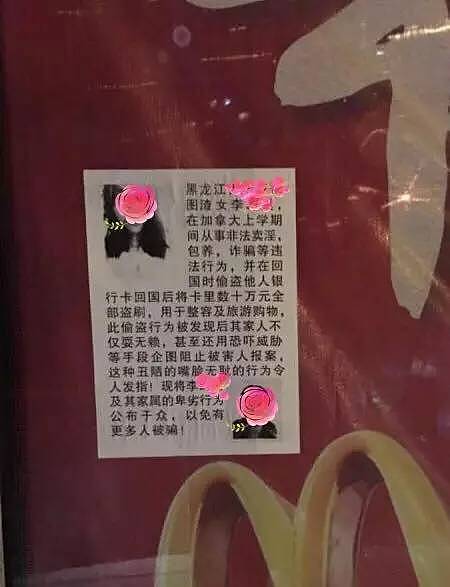 黑龙江
图渣女李
在加拿大上学期
间从事非法卖淫,
包养,诈骗等违
法行为,并在回
国时偷盗他人银
行卡回国后将卡里数十万元全
部盗刷,用于整容及旅游购物,
此偷盗行为被发现后其家人不
仅耍无赖,甚至还用恐吓威胁
等手段企图阻止被害人报案,
这种丑陋的嘴脸无耻的行为令
人发指!现将李
及其家属的卑劣行为
公布于众,以免有
更多人被骗!